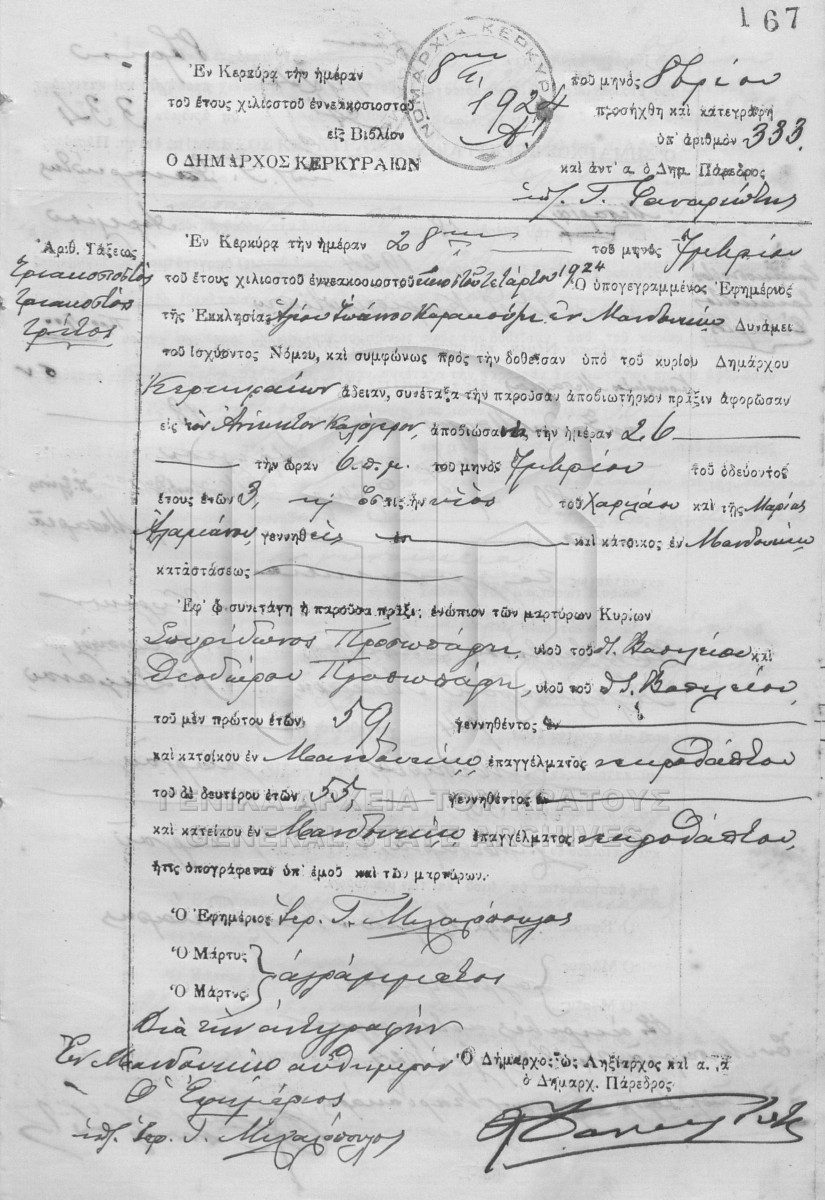 167
Ἐν Κερκύρᾳ τὴν ἡμέραν 8ην τοῦ μηνὸς 8βρίου
τοῦ ἔτους χιλιοστοῦ ἐννεακοσιοστοῦ 1924 προσήχθη καὶ κατεγράφη
εἰς Βιβλίον Α! ὑπ' ἀριθμὸν 333.
Ο ΔΗΜΑΡΧΟΣ ΚΕΡΚΥΡΑΙΩΝ καὶ ἀντ' α. ὁ Δημ. Πάρεδρος
ΝΟΜΑΡΧΙΑ ΚΕΡΚΥΡ
ὑπ. Γ.
Ἀριθ. τάξεως
Τριακοσιοστὸς
τριακοστὸς
τρίτος
Ἐν Κερκύρᾳ τὴν ἡμέραν 28ην τοῦ μηνὸς 7μβρίου
τοῦ ἔτους χιλιοστοῦ ἐννεακοσιοστοῦ εἰκοστοῦ τετάρτου 1924 Ὁ ὑπογεγραμμένος Ἐφημέριος
τῆς Ἐκκλησίας Ἁγίου ἐν Μανδουκίῳ Δυνάμει
τοῦ ἰσχύοντος Νόμου, καὶ συμφώνως πρὸς τὴν δοθεῖσαν ὑπὸ τοῦ κυρίου Δημάρχου
Κερκυραίων ἄδειαν, συνέταξα τὴν παροῦσαν ἀποβιωτήριον πρᾶξιν ἀφορῶσαν
εἰς τὸν Ἀνίκητον Καλόγερον, ἀποβιώσα τὴν ἡμέραν 26
τὴν ὥραν 6 π.μ. τοῦ μηνὸς 7μβρίου τοῦ ὁδεύοντος
ἔτους ἐτῶν 3, ὅστις ἦν υἱὸς τοῦ Χαριλάου καὶ τῆς Μαρίας
γεννηθεὶς ἐν καὶ κάτοικος ἐν Μανδουκίῳ
καταστάσεως
Ἐφ' ᾧ συνετάγη ἡ παροῦσα πρᾶξις ἐνώπιον τῶν μαρτύρων Κυρίων
Σπυρίδωνος υἱοῦ τοῦ Βασιλείου καὶ
Θεοδώρου υἱοῦ τοῦ Βασιλείου,
τοῦ μὲν πρώτου ἐτῶν 59, γεννηθέντος ἐν
καὶ κατοίκου ἐν Μανδουκίῳ, ἐπαγγέλματος νεκροθάπτου
τοῦ δὲ δευτέρου ἐτῶν 55 γεννηθέντος ἐν
καὶ κατοίκου ἐν Μανδουκίῳ, ἐπαγγέλματος νεκροθάπτου,
ἥτις ὑπογράφεται ὑπ' ἐμοῦ καὶ τῶν μαρτύρων.
ΓΕΝΙΚΑ ΑΡΧΕΙΑ ΤΟΥ ΚΡΑΤΟΥΣ
GENERAL STATE ARCHIVES
Ὁ Ἐφημέριος Ἱερ. Γ. Μιχαλόπουλος
Ὁ Μάρτυς
Ὁ Μάρτυς
ἀγράμματος
Διὰ τὴν ἀντιγραφὴν
Ἐν Μανδουκίῳ αὐθημερὸν
Ὁ Ἐφημέριος
ὑπ. Ἱερ. Γ. Μιχαλόπουλος
Ὁ Δήμαρχος ὡς Ληξίαρχος καὶ α. α
ὁ Δημαρχ. Πάρεδρος